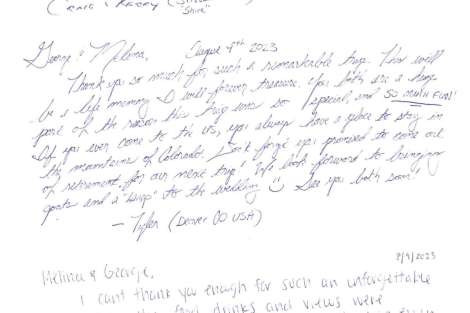 Craig & Kacey (
"Shire"
George & Melina, August 7th 2023
Thank you so much for such a remarkable trip. This will
be a life memory I will forever treasure. You both are a huge
part of the reason this trip was so special and so much fun!
If you ever come to the US, you always have a place to stay in
the mountains of Colorado. Don't forget you promised to come out
of retirement for our next trip! We look forward to bringing
goats and a "sheep" to the wedding ☺ See you both soon!
- Tyler (Denver CO USA)
8/9/2023
Melina & George,
I cant thank you enough for such an unforgettable
food, drinks and views were